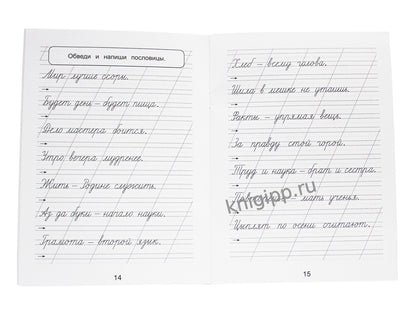 Обведи и напиши пословицы.
Мир лучше ссоры.
Будет день – будет пища.
Дело мастера боится.
Утро вечера мудренее.
Жить – Родине служить.
Аз да буки – начало науки.
Грамота – второй язык.
14
Хлеб – всему голова.
Шила в мешке не утаишь.
Факты – упрямая вещь.
За правду стой горой.
Труд и наука – брат и сестра.
мать ученья.
Цыплят по осени считают.
15
knigipp.ru